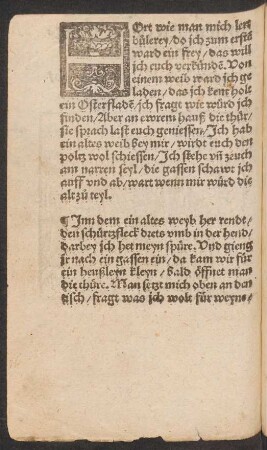 HOrt wie man mich lert
bůlerey / do ich zum erstē
ward ein frey / das will
ich euch verkünden. Von
einem weib ward ich ge
laden / das ich kem holt
ein Osterfladē / ich fragt wie würd ich
finden / Aber an ewrem hauß die thür /
sie sprach last euch geniessen / Ich hab
ein altes weib bey mir / wirdt euch den
poltz wol schiessen / Ich stehe vñ zeuch
am narren seyl / die gassen schawt ich
auff vnd ab / wart wenn mir würd die
alt zů teyl.
¶ Inn dem ein altes weyb her rendt /
den schürtzfleck drets vmb in der hend /
darbey ich het meyn spüre. Vnd gieng
jr nach ein gassen ein / da kam wir für
ein heußleyn kleyn / bald öffnet man
die thüre. Man setzt mich oben an den
tisch / fragt was ich wolt für weyne /